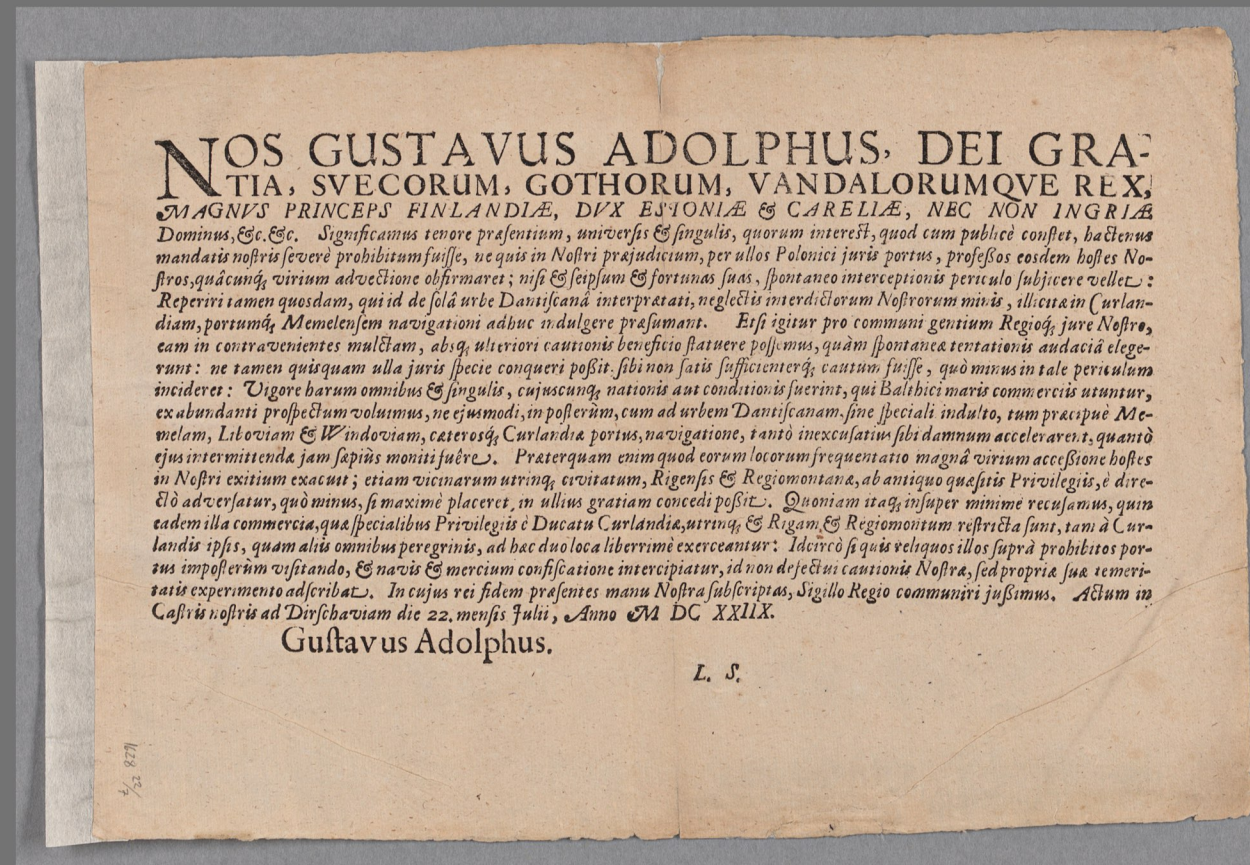 NOS GUSTAVUS ADOLPHUS, DEI GRA-
TIA, SVECORUM, GOTHORUM, VANDALORUMQVE REX,
MAGNVS PRINCEPS FINLANDIÆ, DVX ESTONIÆ & CARELIÆ, NEC NON INGRIÆ
Dominus, &c. &c. Significamus tenore præsentium, universis & singulis, quorum interest, quod cum publicè constet, hactenus
mandatis nostris severè prohibitum fuisse, ne quis in Nostri præjudicium, per ullos Polonici juris portus, professos eosdem hostes No-
stros, quâcunq; virium advectione obfirmaret; nisi & seipsum & fortunas suas, spontaneo interceptionis periculo subjicere vellet:
Reperiri tamen quosdam, qui id de solâ urbe Dantiscanâ interprætati, neglectis interdictorum Nostrorum minis, illicitæ in Curlan-
diam, portumq; Memelensem navigationi adhuc indulgere præsumant. Etsi igitur pro communi gentium Regioq; jure Nostro,
eam in contravenientes mulctam, absq; ulteriori cautionis beneficio statuere possemus, quàm spontaneæ tentationis audaciâ elege-
runt: ne tamen quisquam ulla juris specie conqueri possit, sibi non satis sufficienterq; cautum fuisse, quò minus in tale periculum
incideret: Vigore harum omnibus & singulis, cujuscunq; nationis aut conditionis fuerint, qui Balthici maris commerciis utuntur,
ex abundanti prospectum voluimus, ne ejusmodi, in posterùm, cum ad urbem Dantiscanam, sine speciali indulto, tum præcipuè Me-
melam, Liboviam & Windoviam, cæterosq; Curlandiæ portus, navigatione, tantò inexcusatius sibi damnum accelerarent, quantò
ejus intermittendæ jam sæpiùs moniti fuêre. Præterquam enim quod eorum locorum frequentatio magnâ virium accessione hostes
in Nostri exitium exacuit; etiam vicinarum utrinq; civitatum, Rigensis & Regiomontanæ, ab antiquo quæsitis Privilegiis, è dire-
ctò adversatur, quò minus, si maximè placeret, in ullius gratiam concedi possit. Quoniam itaq; insuper minimè recusamus, quin
eadem illa commercia, quæ specialibus Privilegiis è Ducatu Curlandiæ, utrinq; & Rigam & Regiomontum restricta sunt, tam à Cur-
landis ipsis, quam aliis omnibus peregrinis, ad hæc duo loca liberrimè exerceantur: Idcircò si quis reliquos illos suprà prohibitos por-
tus imposterum visitando, & navis & mercium confiscatione intercipiatur, id non defectui cautionis Nostræ, sed propriæ suæ temeri-
tatis experimento adscribat. In cujus rei fidem præsentes manu Nostra subscriptas, Sigillo Regio communiri jussimus. Actum in
Castris nostris ad Dirschaviam die 22. mensis Julii, Anno M DC XXIIX.
Gustavus Adolphus.
L. S.
1628 22/7